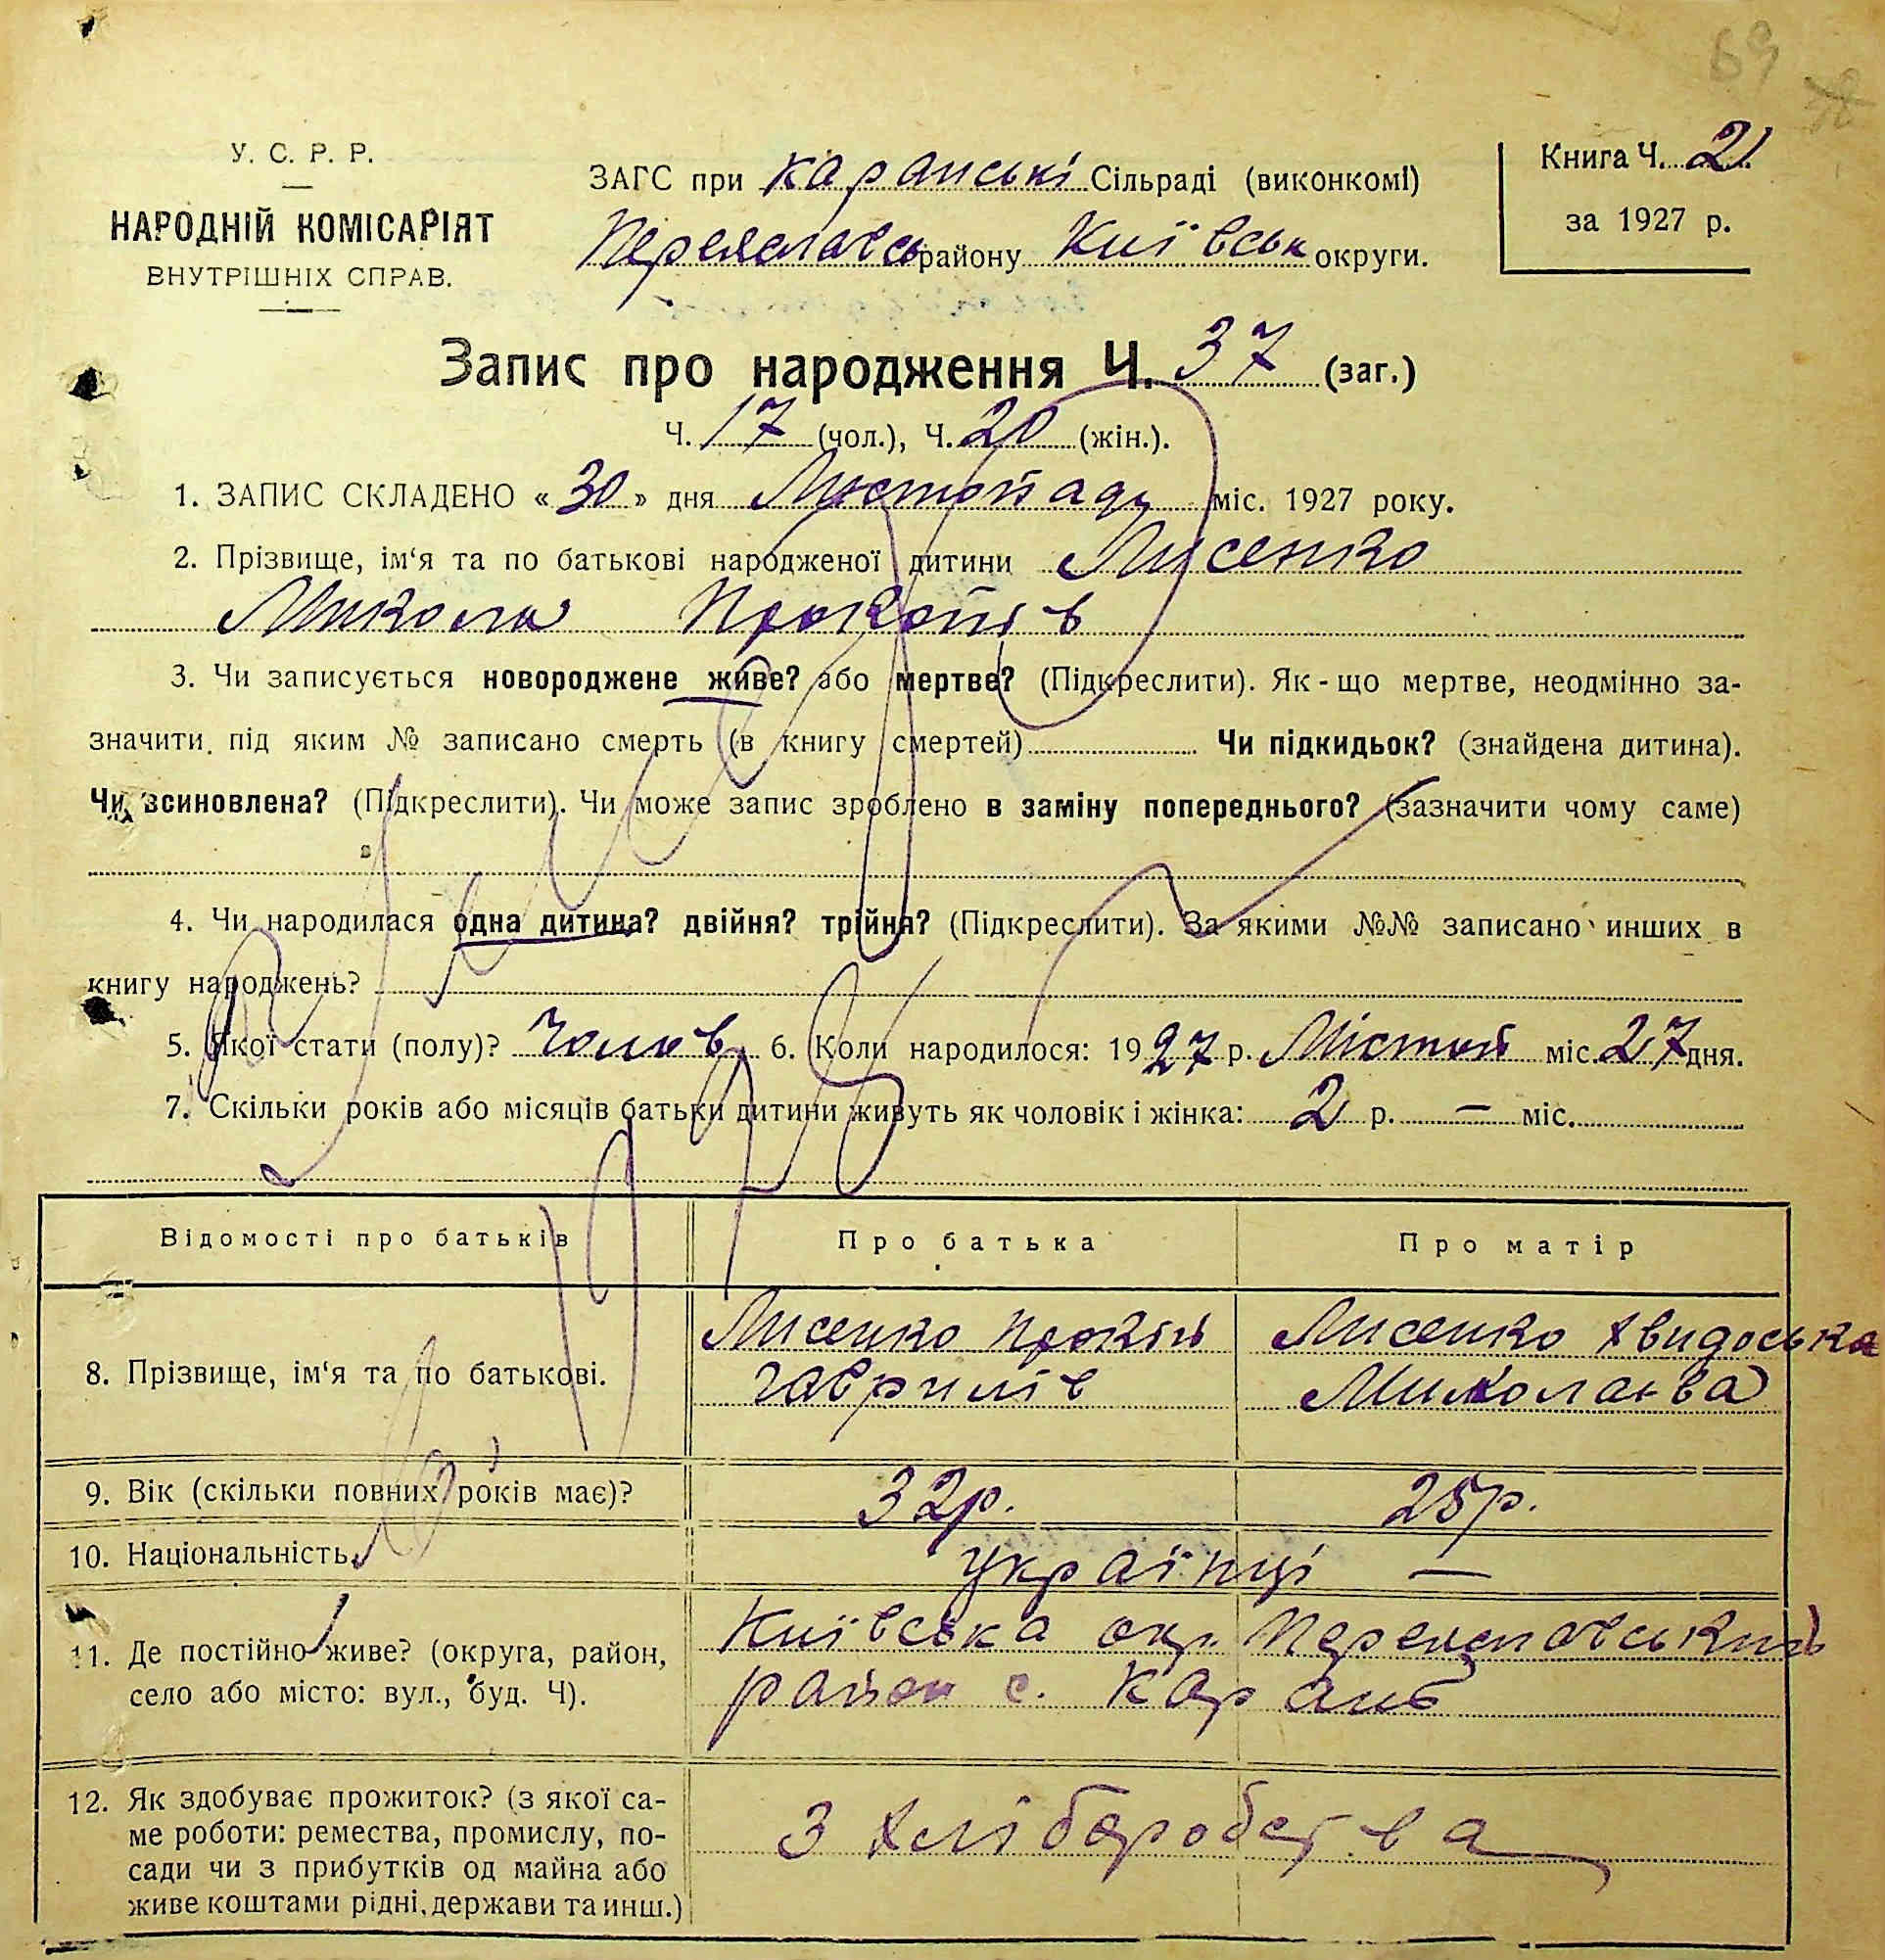 69
У. С. Р. Р.
НАРОДНІЙ КОМІСАРІЯТ
ВНУТРІШНІХ СПРАВ.
ЗАГС при Каранські Сільраді (виконкомі)
Переяславсь району Київськ округи.
Книга Ч. 2
за 1927 р.
Запис про народження Ч. 37 (заг.)
Ч. 17 (чол.), Ч. 20 (жін.).
1. ЗАПИС СКЛАДЕНО « 30 » дня Листопаду міс. 1927 року.
2. Прізвище, ім'я та по батькові народженої дитини Лисенко
Микола Прокопів
3. Чи записується новороджене живе? або мертве? (Підкреслити). Як-що мертве, неодмінно за-
значити під яким № записано смерть (в книгу смертей) Чи підкидьок? (знайдена дитина).
Чи всиновлена? (Підкреслити). Чи може запис зроблено в заміну попереднього? (зазначити чому саме)
4. Чи народилася одна дитина? двійня? трійня? (Підкреслити). За якими №№ записано инших в
книгу народжень?
5. Якої стати (полу)? Чолов 6. Коли народилося: 1927 р. Лістоп міс. 27 дня.
7. Скільки років або місяців батьки дитини живуть як чоловік і жінка: 2 р. — міс.
Відомості про батьків Про батька Про матір
8. Прізвище, ім'я та по батькові.
Лисенко Прокіп Лисенко Хвидоська
Гаврилів Миколаєва
9. Вік (скільки повних років має)? 32р. 25р.
10. Національність українці —
11. Де постійно живе? (округа, район,
село або місто: вул., буд. Ч).
Київська окр. Переяславський
район с. Карань
12. Як здобуває прожиток? (з якої са-
ме роботи: ремества, промислу, по-
сади чи з прибутків од майна або
живе коштами рідні, держави та инш.)
З хліборобства